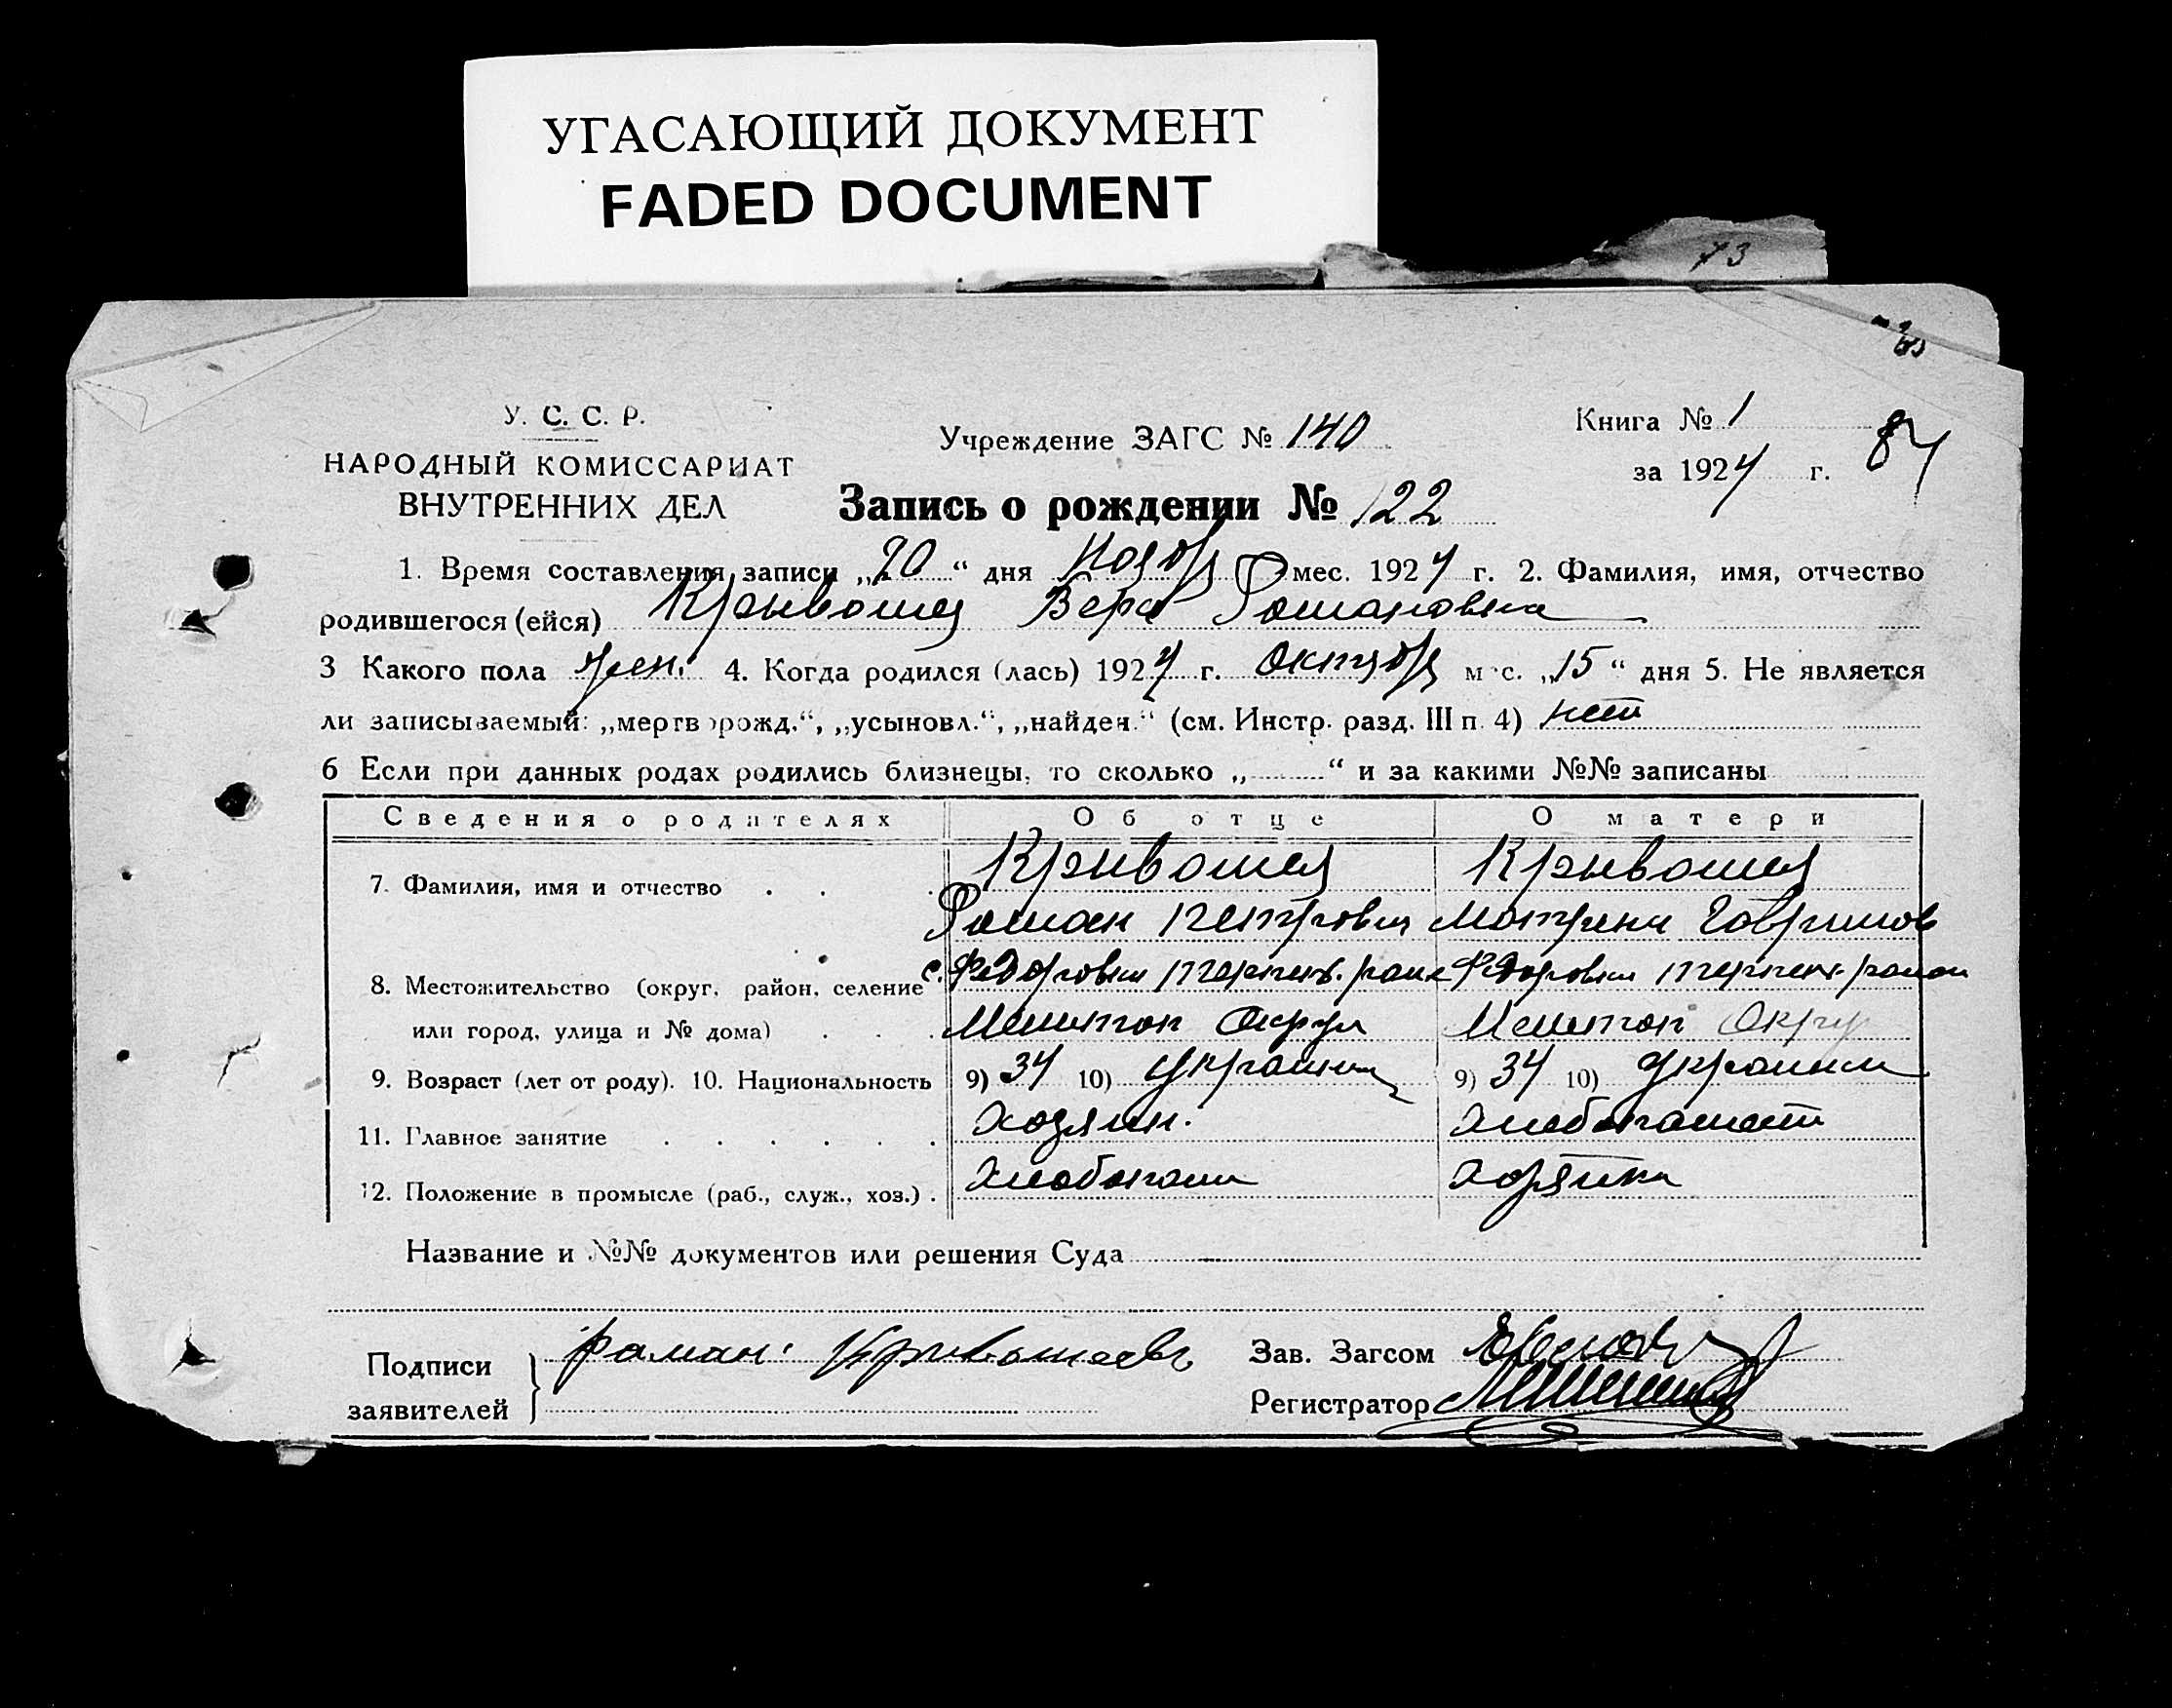 УГАСАЮЩИЙ ДОКУМЕНТ
FADED DOCUMENT
73
У. С. С. Р.
НАРОДНЫЙ КОМИССАРИАТ
ВНУТРЕННИХ ДЕЛ
Учреждение ЗАГС № 140
Книга № 1
за 1924 г.
84
Запись о рождении № 122
1. Время составления записи „20“ дня Нояб мес. 1924 г. 2. Фамилия, имя, отчество
родившегося (ейся) Вера Романовна
3 Какого пола жен. 4. Когда родился (лась) 1924 г. Октяб м с. „15“ дня 5. Не является
ли записываемый: „мертворожд.“, „усыновл.“, „найден.“ (см. Инстр. разд. III п. 4) нет
6 Если при данных родах родились близнецы, то сколько „ “ и за какими №№ записаны
Сведения о родителях Об отце О матери
7. Фамилия, имя и отчество
Роман Петрович
8. Местожительство (округ, район, селение
или город, улица и № дома) Округ Округ
9. Возраст (лет от роду). 10. Национальность 9) 34 10) 9) 34 10)
11. Главное занятие Хозяин.
12. Положение в промысле (раб., служ., хоз.)
Название и №№ документов или решения Суда
Подписи
заявителей
Раман Кривошеевъ
Зав. Загсом
Регистратор